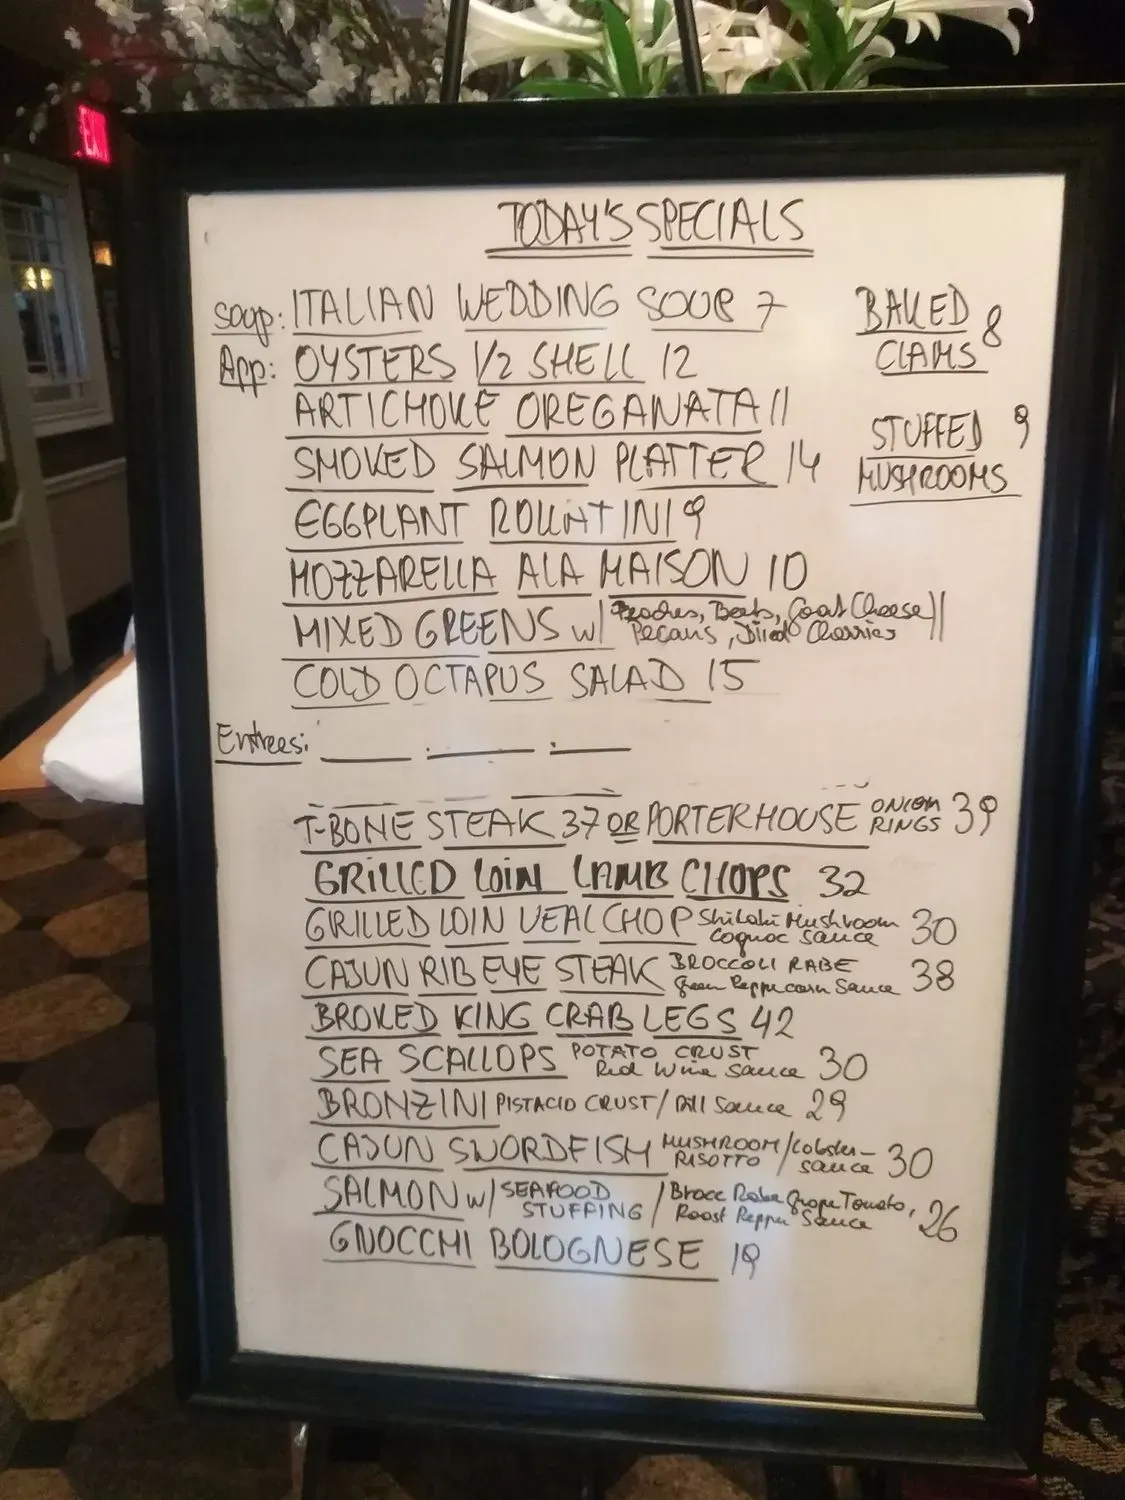 EXIT
TODAY'S SPECIALS
Soup: ITALIAN WEDDING SOUP 7
App: OYSTERS 1/2 SHELL 12
ARTICHOKE OREGANATA 11
SMOKED SALMON PLATTER 14
EGGPLANT ROLLATINI 9
MOZZARELLA ALA MAISON 10
MIXED GREENS w/ Peaches, Beets, Goat Cheese 11
Pecans, Dried Cherries
COLD OCTAPUS SALAD 15
BAKED 8
CLAMS
STUFFED 9
MUSHROOMS
Entrees:
T-BONE STEAK 37 OR PORTERHOUSE ONION RINGS 39
GRILLED LOIN LAMB CHOPS 32
GRILLED LOIN VEAL CHOP Shitaki Mushroom 30
Cognac Sauce
CAJUN RIB EYE STEAK BROCCOLI RABE 38
Green Peppercorn Sauce
BROILED KING CRAB LEGS 42
SEA SCALLOPS POTATO CRUST 30
Red Wine Sauce
BRONZINI PISTACIO CRUST / Dill Sauce 29
CAJUN SWORDFISH MUSHROOM RISOTTO / Lobster Sauce 30
SALMON w/ SEAFOOD STUFFING / Brocc Rabe Grape Tomato, 26
Roast Pepper Sauce
GNOCCHI BOLOGNESE 19